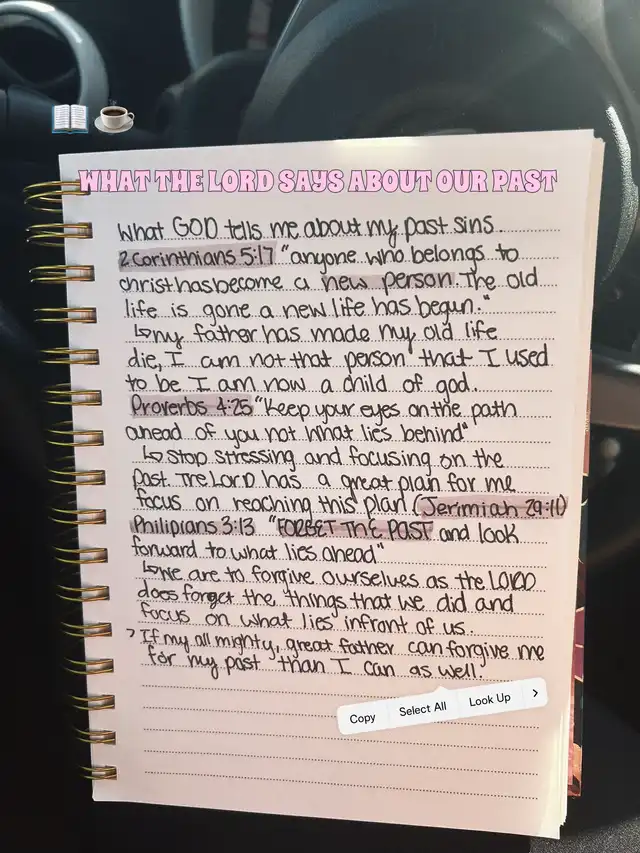 WHAT THE LORD SAYS ABOUT OUR PAST
What GOD tells me about my past sins.
2 Corinthians 5:17 "anyone who belongs to
christ has become a new person. The old
life is gone a new life has begun."
↳ my father has made my old life
die, I am not that person that I used
to be I am now a child of god.
Proverbs 4:25 "Keep your eyes on the path
ahead of you not what lies behind"
↳ stop stressing and focusing on the
past. The LORD has a great plan for me
focus on reaching this plan (Jerimiah 29:11)
Philipians 3:13 "FORGET THE PAST and look
forward to what lies ahead"
↳ we are to forgive ourselves as the LORD
does forget the things that we did and
focus on what lies infront of us.
> If my all mighty, great father can forgive me
for my past than I can as well.
Copy Select All Look Up >